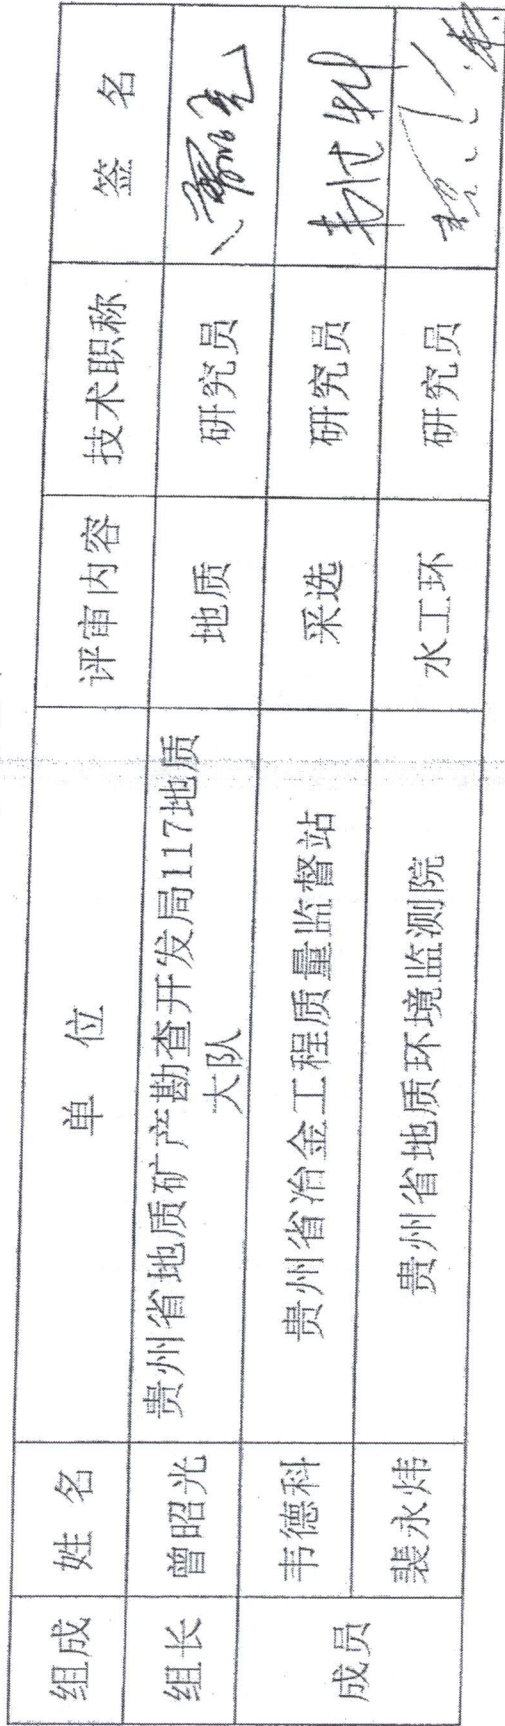 组成 姓 名 单 位 评审内容 技术职称 签 名
组长 曾昭光 贵州省地质矿产勘查开发局117地质 地质 研究员
大队
成员 韦德科 贵州省冶金工程质量监督站 采选 研究员
裴永炜 贵州省地质环境监测院 水工环 研究员